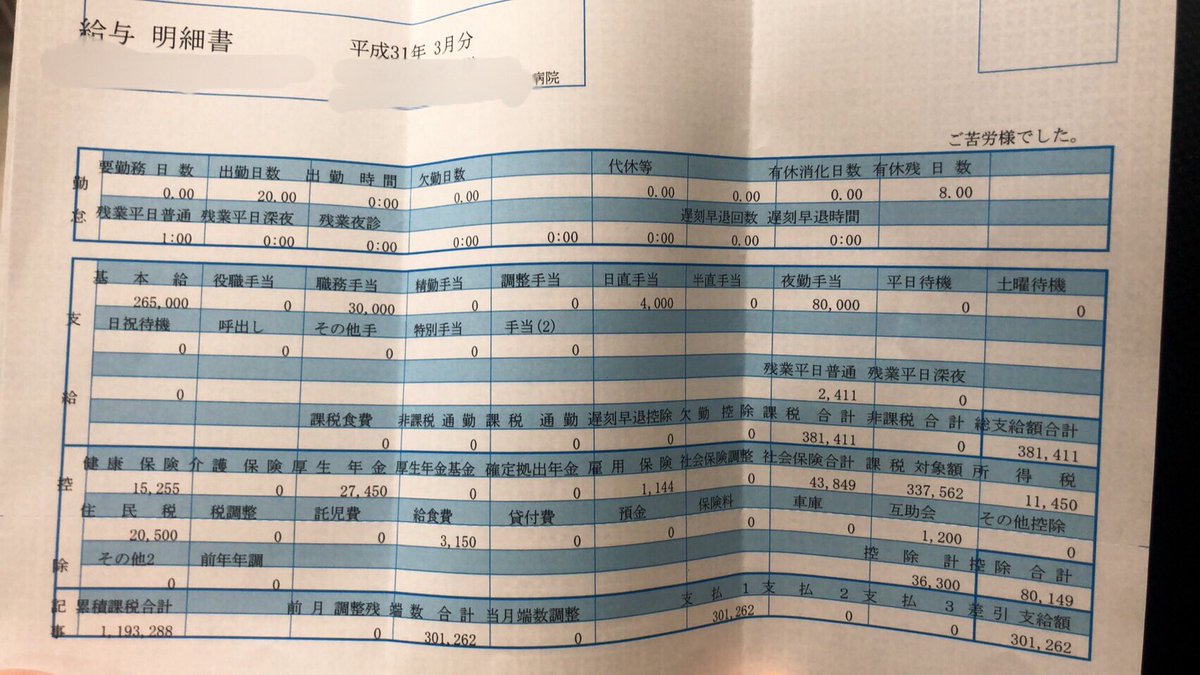 給与 明細書
平成31年 3月分
病院
ご苦労様でした。
勤怠
要勤務日数 出勤日数 出勤時間 欠勤日数 代休等 有休消化日数 有休残日数
0.00 20.00 0:00 0.00 0.00 0.00 0.00 8.00
残業平日普通 残業平日深夜 残業夜診 遅刻早退回数 遅刻早退時間
1:00 0:00 0:00 0:00 0:00 0:00 0.00 0:00
支給
基本給 役職手当 職務手当 精勤手当 調整手当 日直手当 半直手当 夜勤手当 平日待機 土曜待機
265,000 0 30,000 0 0 4,000 0 80,000 0 0
日祝待機 呼出し その他手 特別手当 手当(2)
0 0 0 0 0
残業平日普通 残業平日深夜
0 2,411 0
課税食費 非課税通勤 課税通勤 遅刻早退控除 欠勤控除 課税合計 非課税合計 総支給額合計
0 0 0 0 0 381,411 0 381,411
控除
健康保険 介護保険 厚生年金 厚生年金基金 確定拠出年金 雇用保険 社会保険調整 社会保険合計 課税対象額 所得税
15,255 0 27,450 0 0 1,144 0 43,849 337,562 11,450
住民税 税調整 託児費 給食費 貸付費 預金 保険料 車庫 互助会 その他控除
20,500 0 0 3,150 0 0 0 0 1,200 0
その他2 前年年調 控除計 控除合計
0 0 36,300 80,149
記事
累積課税合計 前月調整残 端数合計 当月端数調整 支払1 支払2 支払3 差引支給額
1,193,288 0 301,262 0 301,262 0 0 301,262